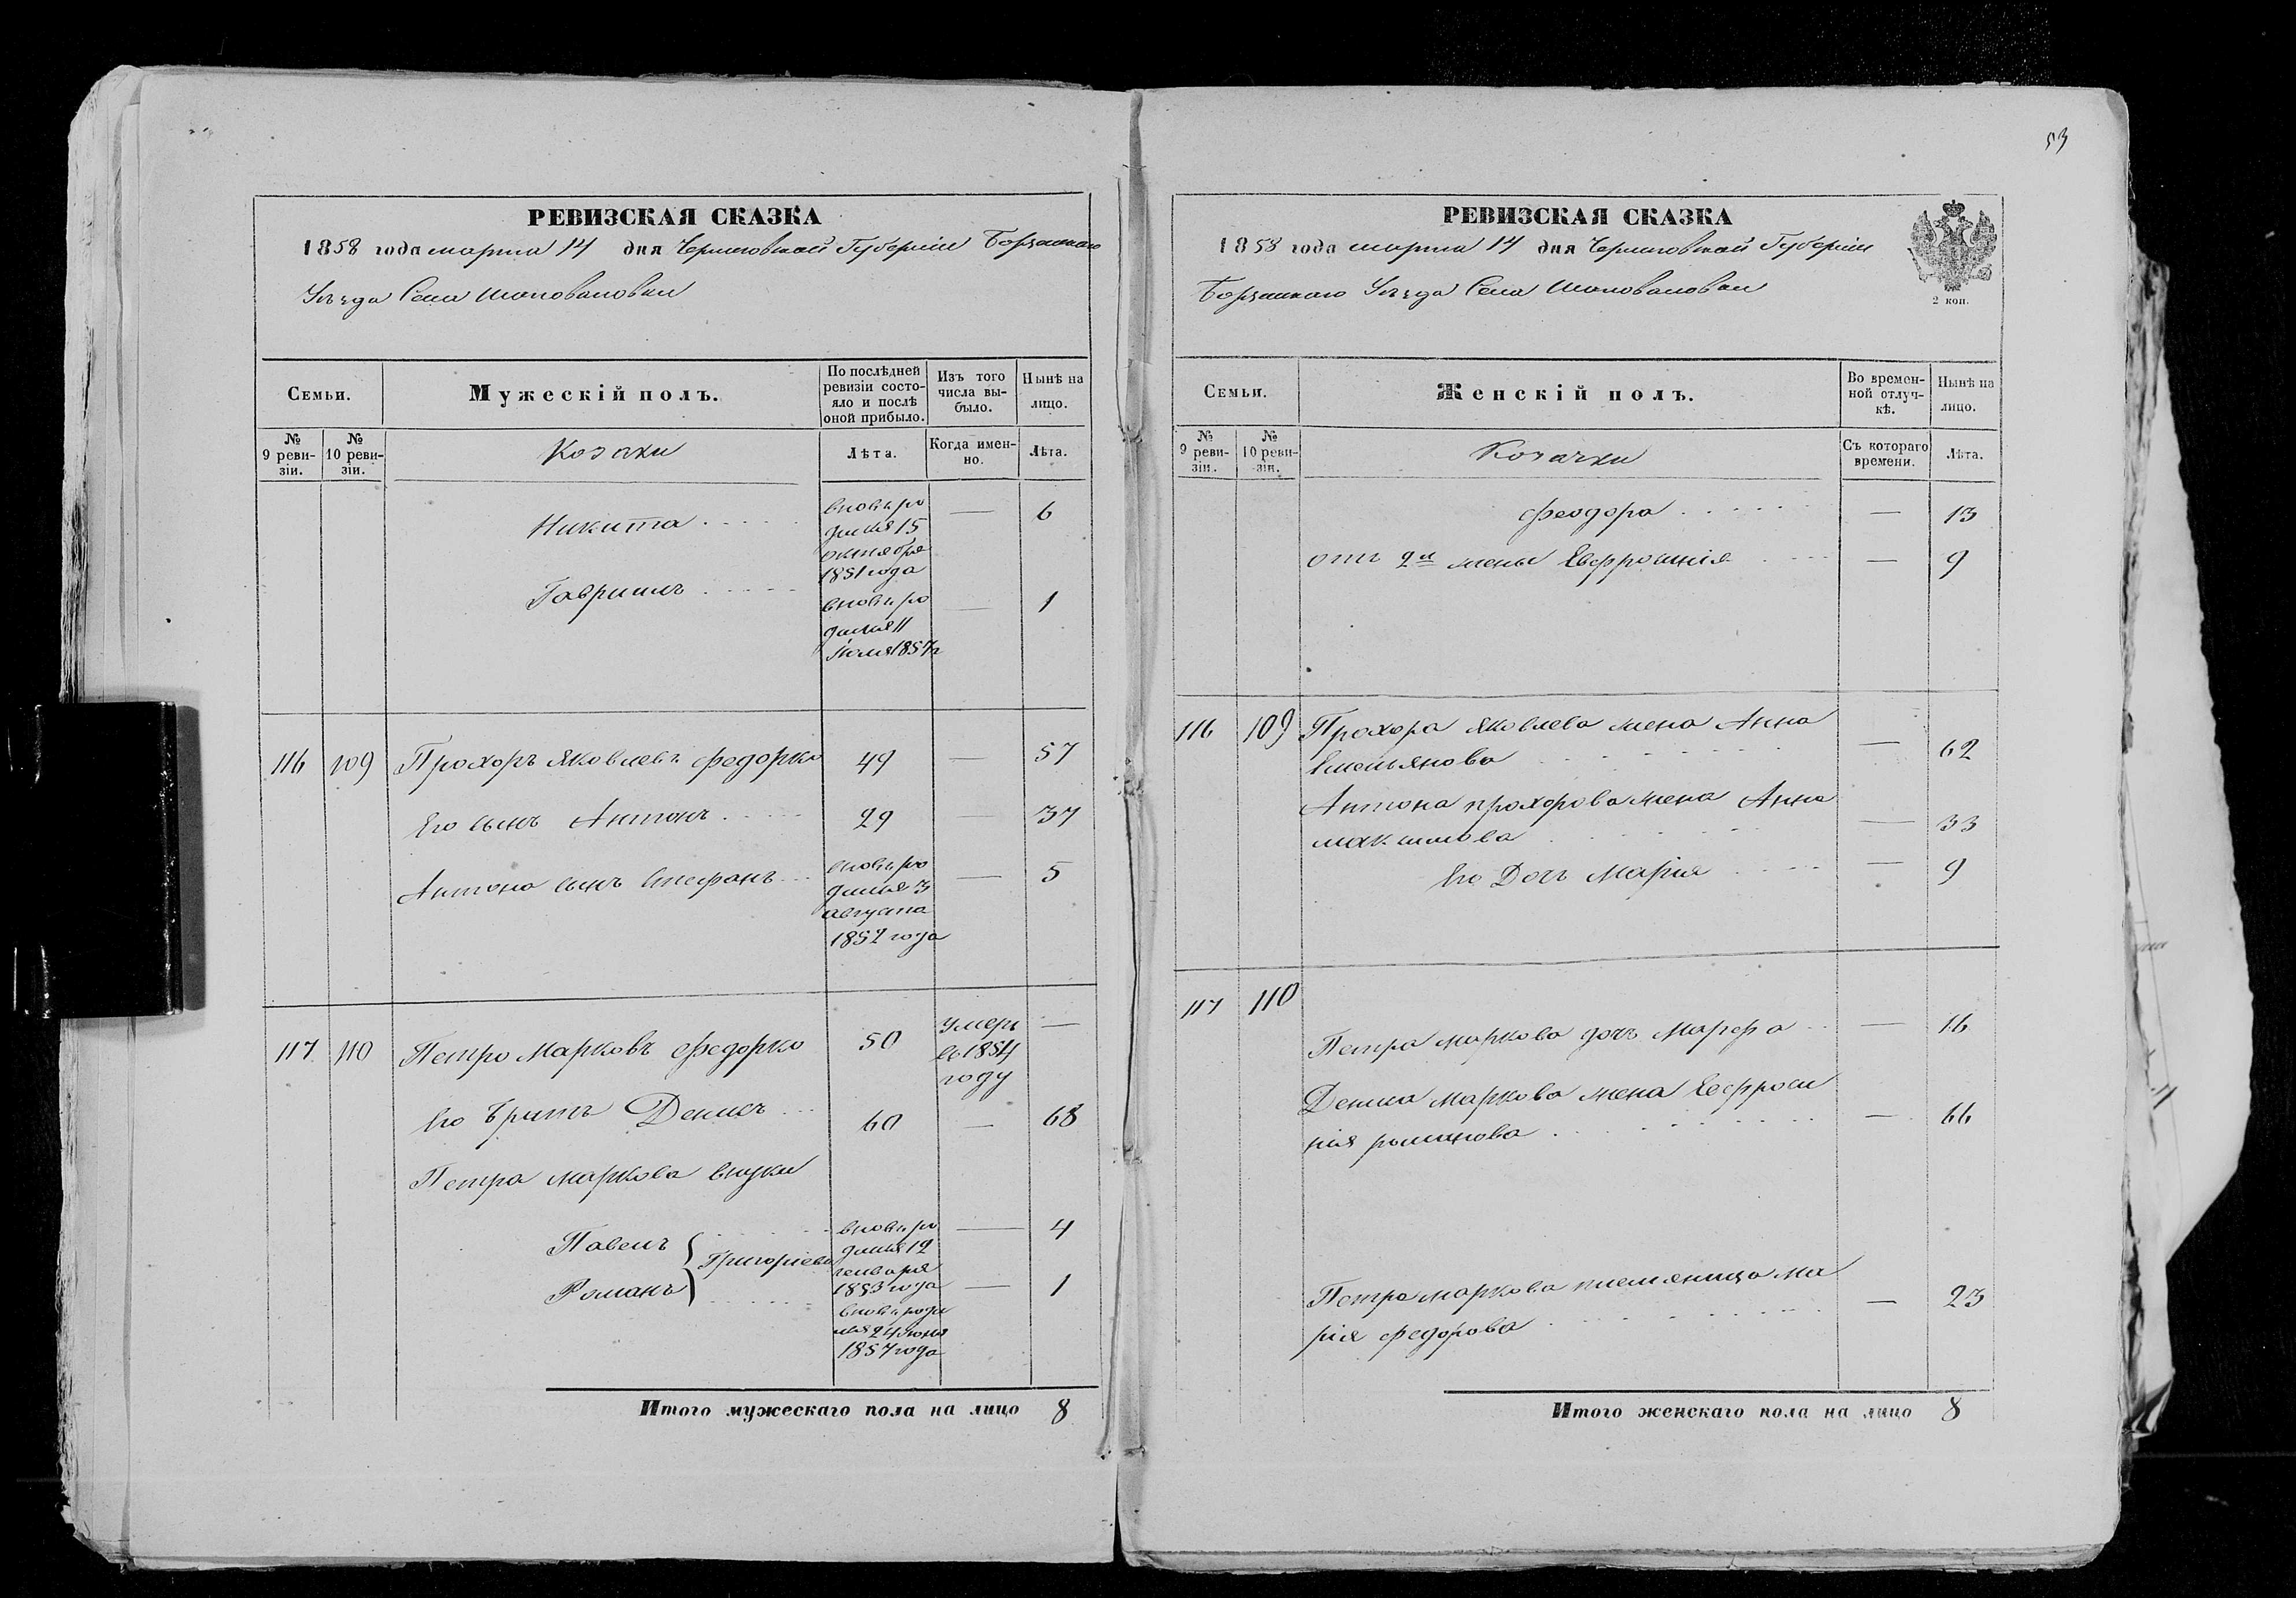 53
РЕВИЗСКАЯ СКАЗКА
1858 года марта 14 дня Черниговской Губернiи Борзенского
Уѣзда Села Шаповаловки
Семьи.
Мужескiй полъ.
По послѣдней ревизiи состо-
яло и послѣ оной прибыло.
Изъ того числа вы-
было.
Нынѣ на лицо.
№ 9 реви-
зiи.
№ 10 реви-
зiи.
Козаки
Лѣта.
Когда имен-
но.
Лѣта.
Никита вновь ро — 6
дился 15
октября
1851 года
Гаврiилъ вновь ро — 1
дился 11
Iюля 1857 г
116 109 Прохоръ Яковлевъ Федорко 49 — 57
Его сынъ Антонъ 29 — 37
Антона сынъ Стефанъ вновь ро — 5
дился 3
августа
1852 года
117 110 Петро Марковъ Федорко 50 умеръ —
въ 1854
году
Его братъ Денисъ 60 — 68
Петра Маркова внуки
Павелъ вновь ро — 4
дился 12
генваря
1853 года
Григорiева
Романъ — 1
вновь роди
лся 24 Iюня
1857 года
Итого мужескаго пола на лицо 8
РЕВИЗСКАЯ СКАЗКА
1858 года марта 14 дня Черниговской Губернiи
Борзенского Уѣзда Села Шаповаловки
2 коп.
Семьи.
Женскiй полъ.
Во времен-
ной отлуч-
кѣ.
Нынѣ на лицо.
№ 9 реви-
зiи.
№ 10 реви-
зiи.
Козачки
Съ котораго времени.
Лѣта.
Феодора — 13
отъ 2й жены Евфросинiя — 9
116 109 Прохора Яковлева жена Анна
Емельянова — 62
Антона Прохорова жена Анна
Максимова — 33
Его Дочь Марiя — 9
117 110
Петра Маркова дочь Марфа — 16
Дениса Маркова жена Евфроси
нiя романова — 66
Петра Маркова племянница Ма
рiя Федорова — 23
Итого женскаго пола на лицо 8